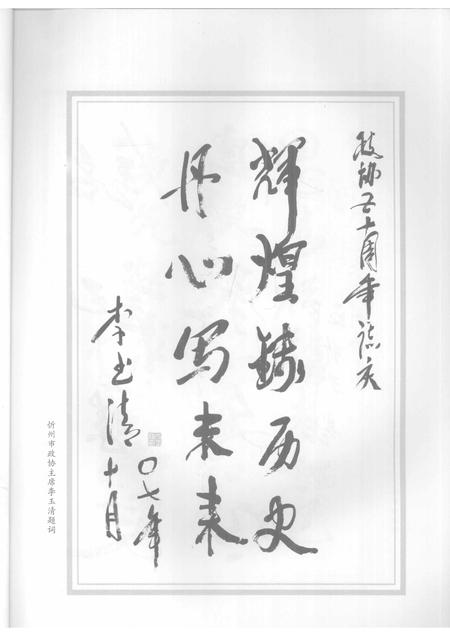 政协五十周年誌庆
辉煌铸历史
丹心写未来
李玉清
〇七年
十月
忻州市政协主席李玉清题词